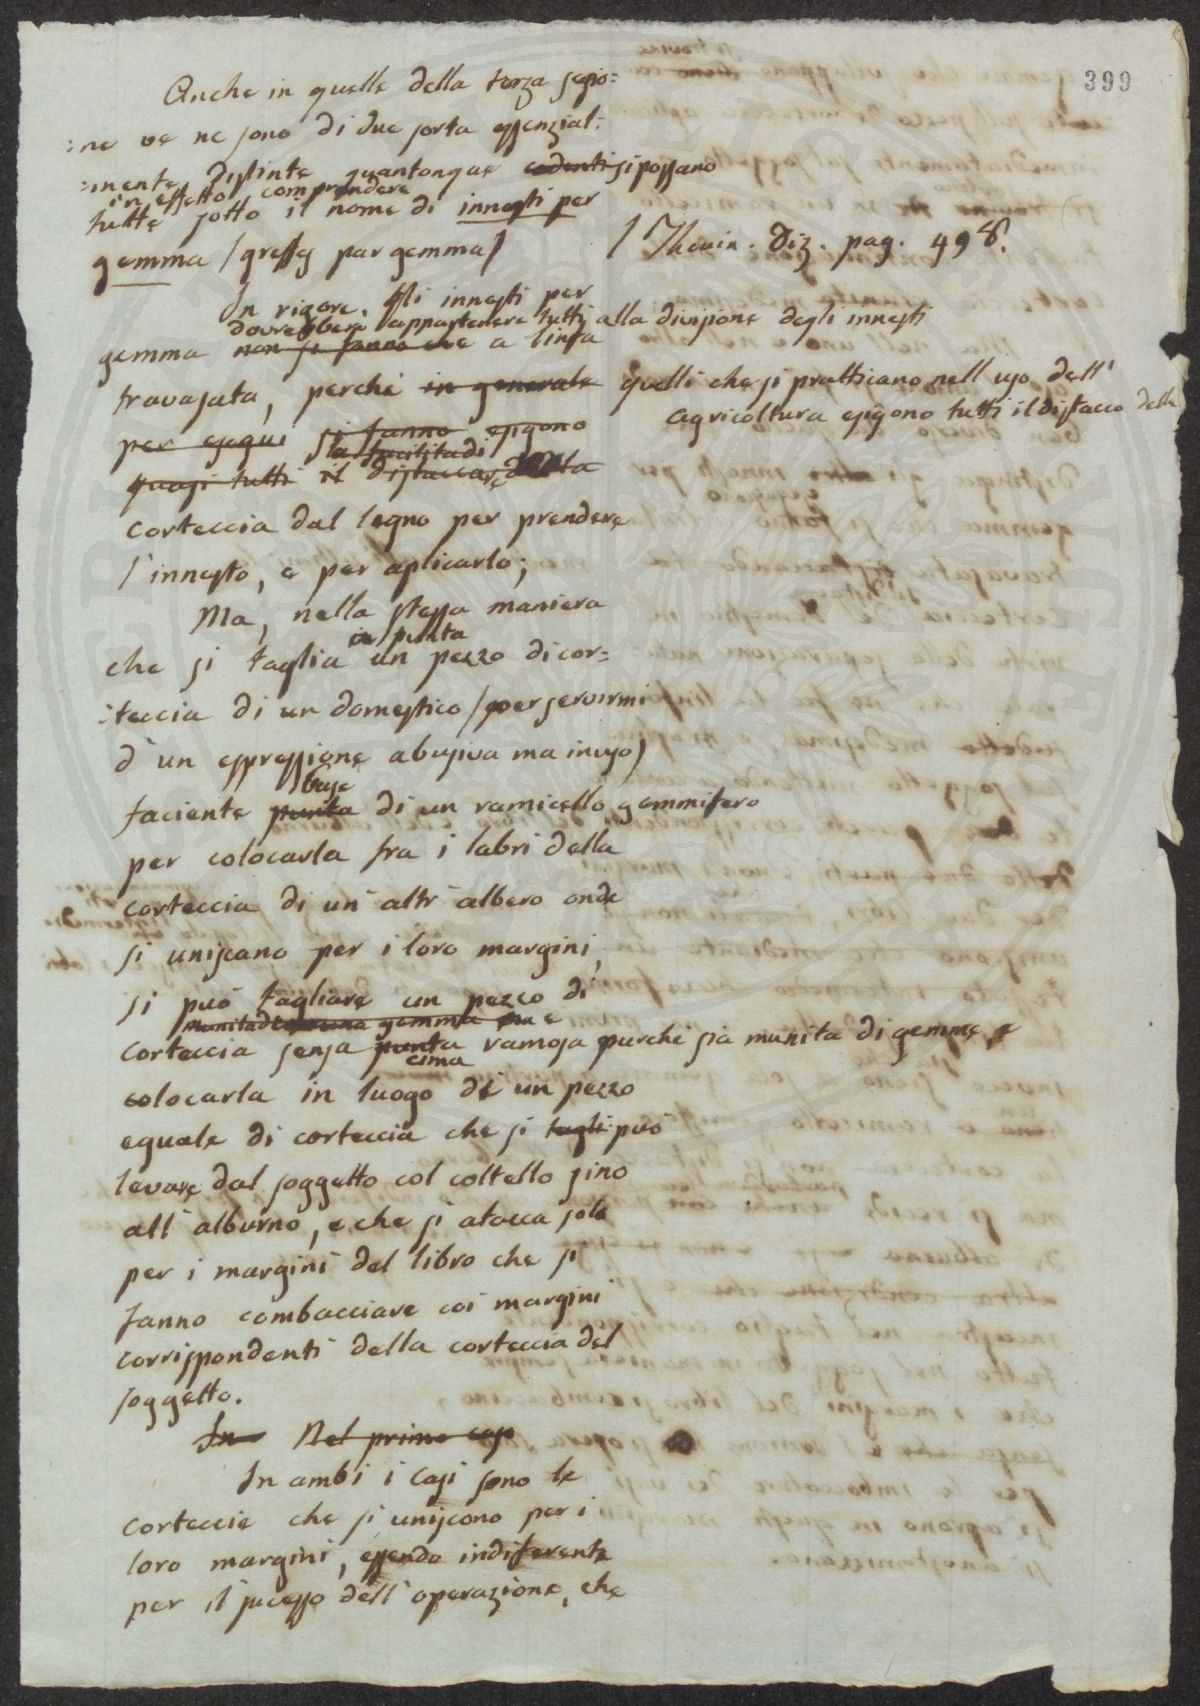 399
Anche in quelle della terza sezio=
:ne ve ne sono di due sorta essenzial:
:mente distinte quantonque si possano
in effetto comprendere
tutte sotto il nome di innesti per
gemma /greffes par gemma/ / Thouin. Diz. pag. 498.
In rigore, Gli innesti per
dovrebbero appartenere tutti alla divisione degli innesti
gemma non si fanno che a linfa
travasata, perché in generale quelli che si pratticano nell uso dell'
agricoltura esigono tutti il distacco della
per esegui si fanno esigono
la facilità di
quasi tutti il distaccare della
corteccia dal legno per prendere
l'innesto, e per aplicarlo;
Ma, nella stessa maniera
in punta
che si taglia un pezzo di cor=
:teccia di un domestico /per servirmi
d'un espressione abusiva ma in uso/
base
faciente punta di un ramicello gemmifero
per colocarla fra i labri della
corteccia di un altr'albero onde
si uniscano per i loro margini,
si può tagliare un pezzo di
munita di gemma
corteccia senza punta ramosa purché sia munita di gemme, e
cima
colocarla in luogo di un pezzo
eguale di corteccia che si tagli può
levare dal soggetto col coltello sino
all'alburno, e che si atacca solo
per i margini del libro che si
fanno combacciare coi margini
corrispondenti della corteccia del
soggetto.
In Nel primo caso
In ambi i casi sono le
corteccie che si uniscono per i
loro margini, essendo indiferente
per il sucesso dell'operazione, che